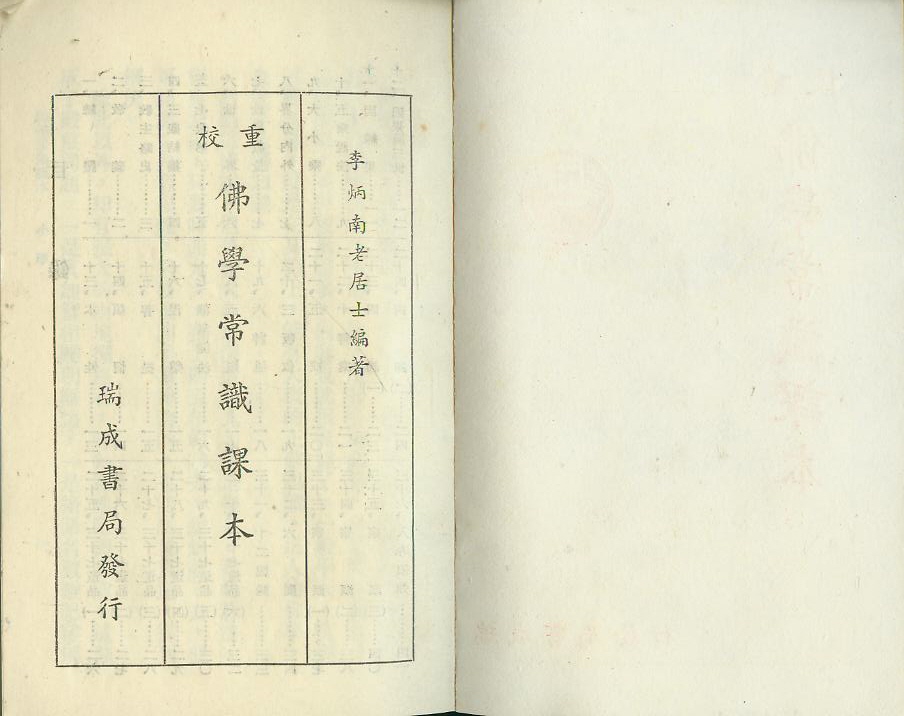 李炳南老居士編著
重校
佛學常識課本
瑞成書局發行